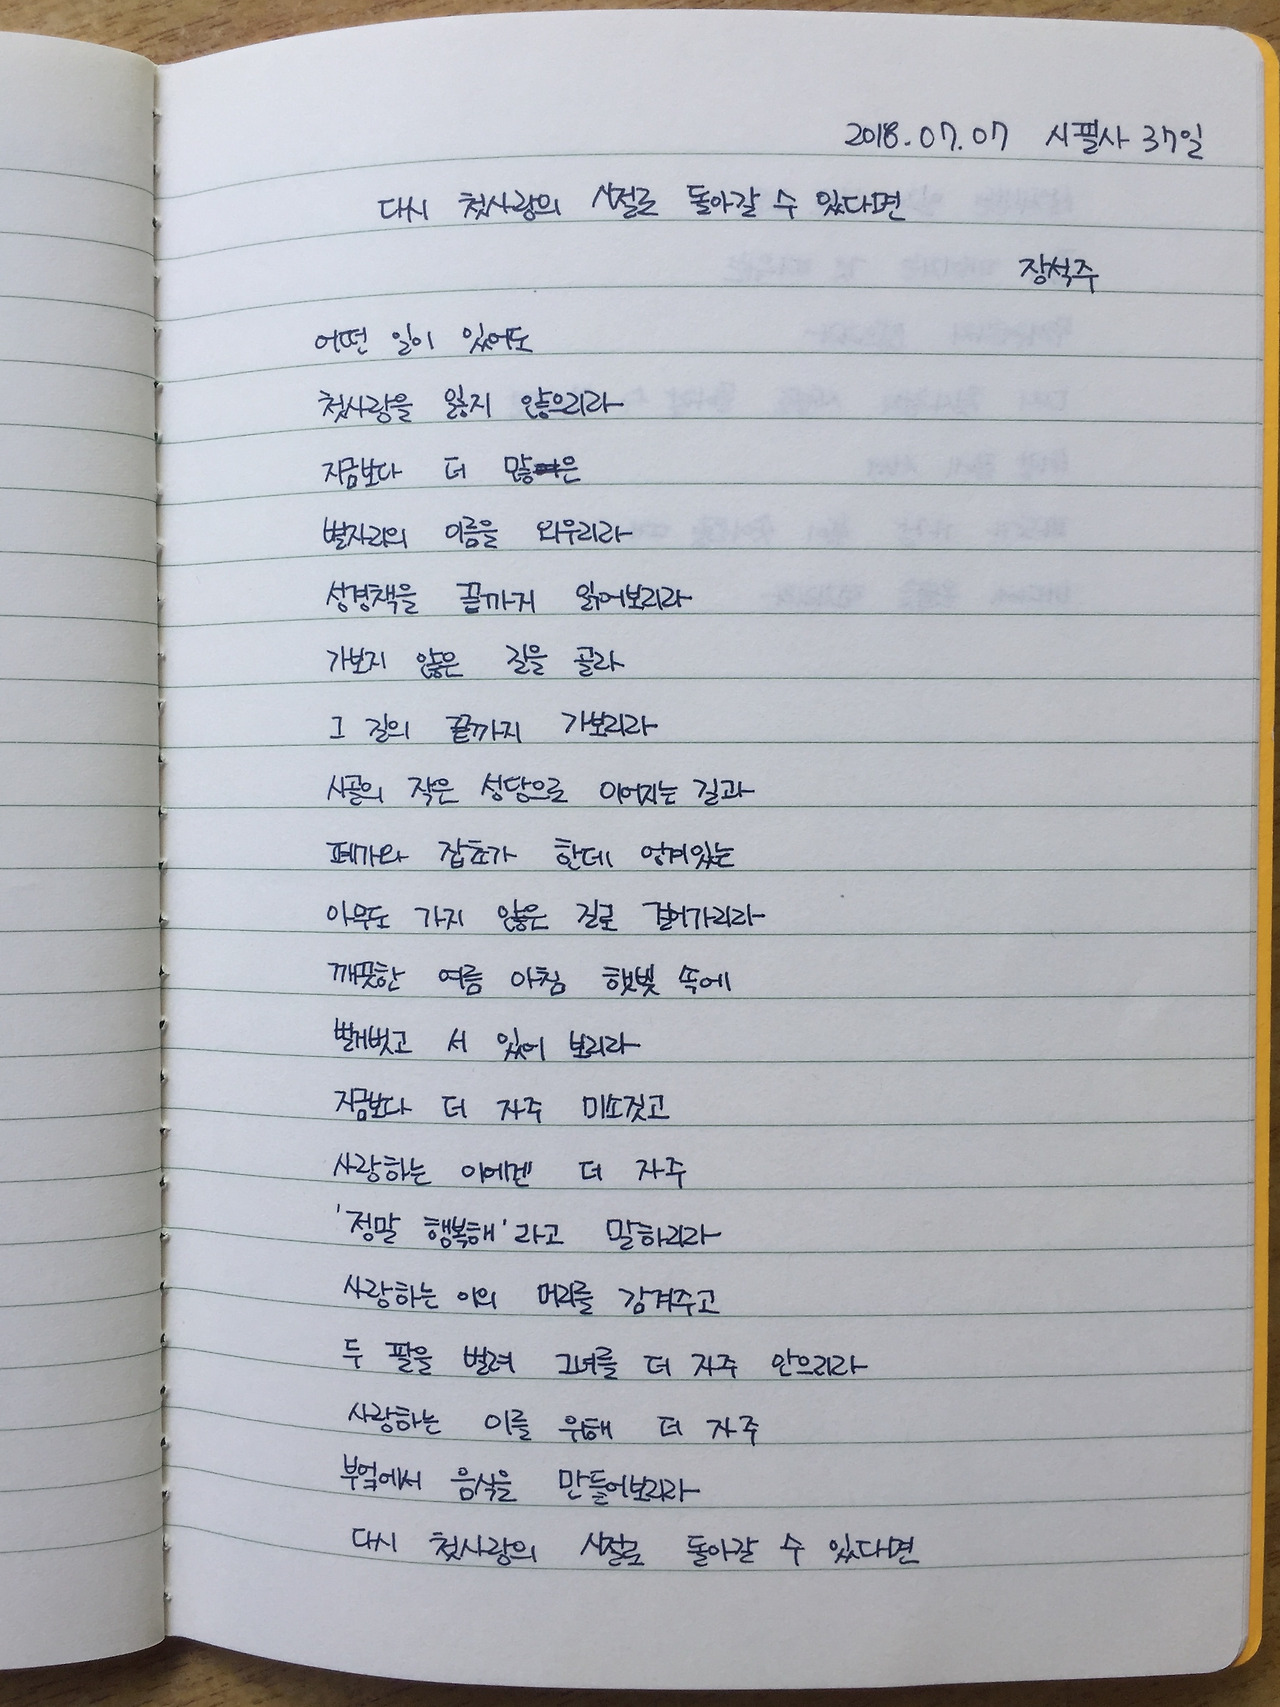 2018.07.07 시필사 37일
다시 첫사랑의 시절로 돌아갈 수 있다면
장석주
어떤 일이 있어도
첫사랑을 잃지 않으리라
지금보다 더 많은
별자리의 이름을 외우리라
성경책을 끝까지 읽어보리라
가보지 않은 길을 골라
그 길의 끝까지 가보리라
시골의 작은 성당으로 이어지는 길과
폐가와 잡초가 한데 엉겨있는
아무도 가지 않은 길로 걸어가리라
깨끗한 여름 아침 햇빛 속에
벌거벗고 서 있어 보리라
지금보다 더 자주 미소짓고
사랑하는 이에겐 더 자주
'정말 행복해'라고 말하리라
사랑하는 이의 머리를 감겨주고
두 팔을 벌려 그녀를 더 자주 안으리라
사랑하는 이를 위해 더 자주
부엌에서 음식을 만들어보리라
다시 첫사랑의 시절로 돌아갈 수 있다면